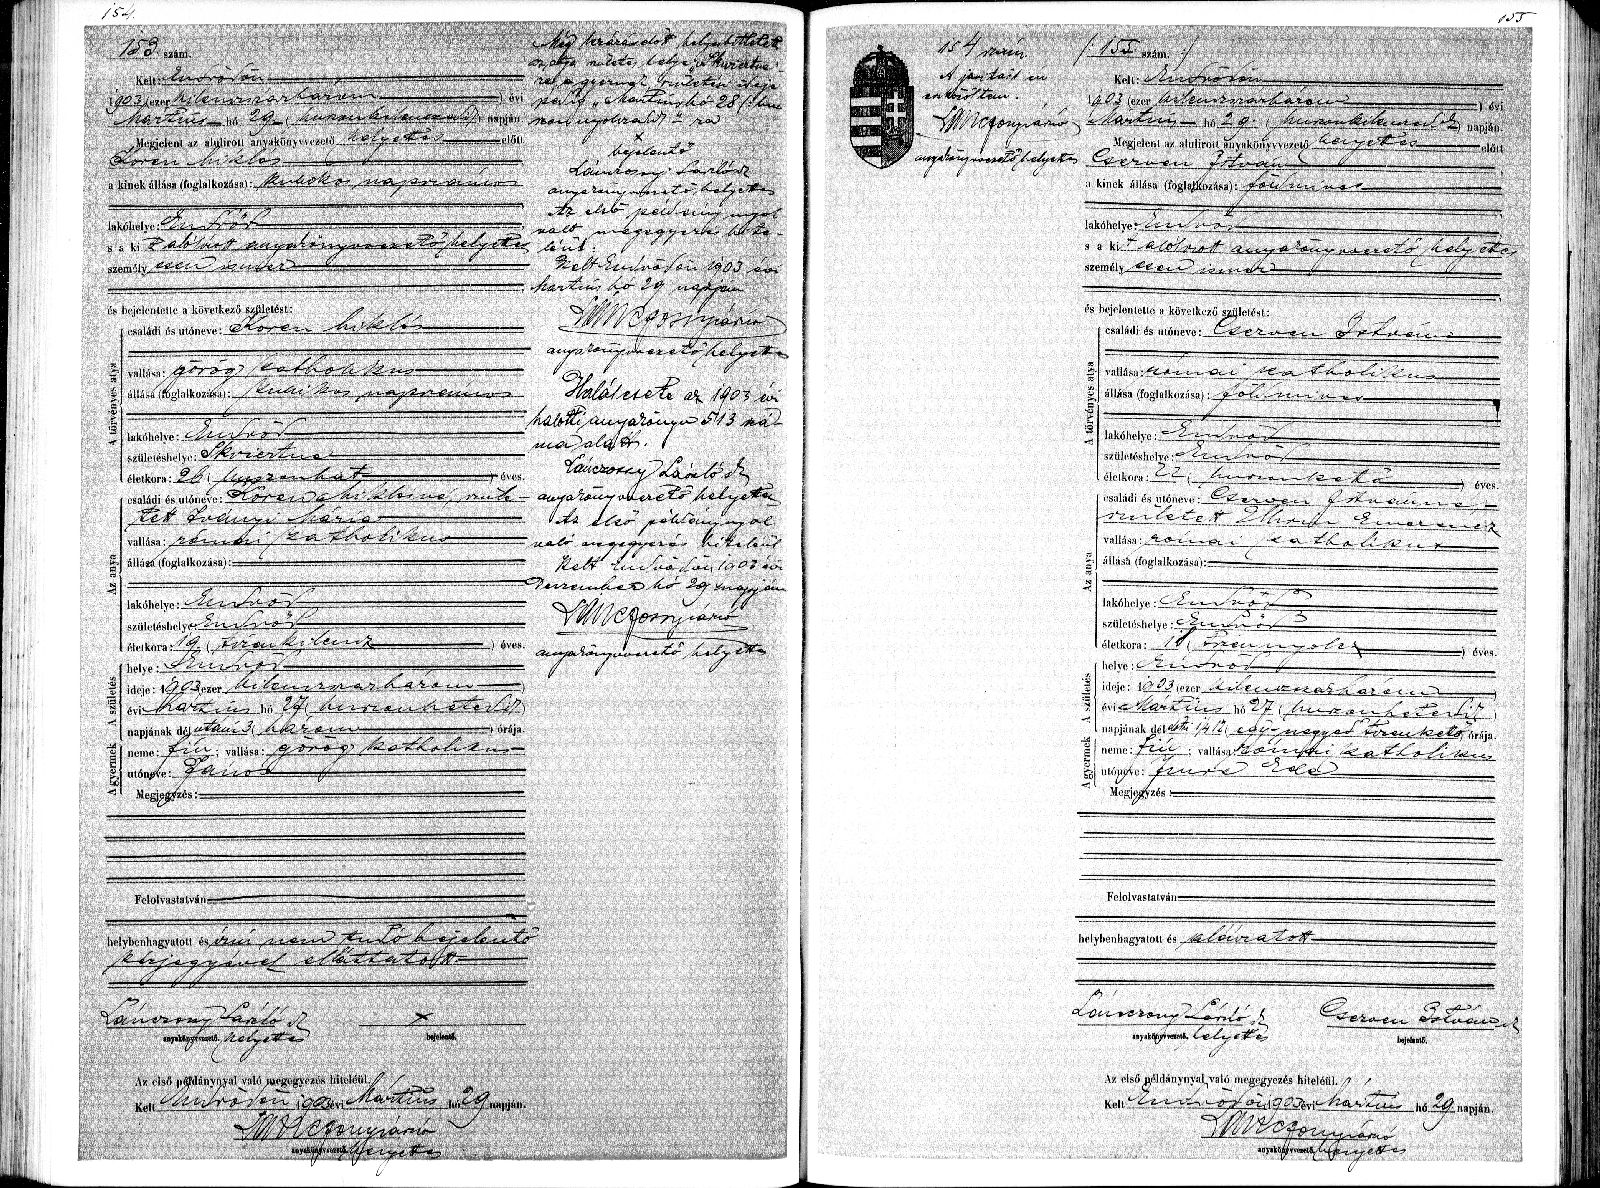 154.
153. szám.
Kelt Endrődön
1903 (ezer kilenczszázhárom) évi
Martius hó 29 (huszonkilenczedik) napján.
Megjelent az alulirott anyakönyvvezető helyettes előtt
Koren Miklós
a kinek állása (foglalkozása): kubikos napszámos
lakóhelye: Endrőd
s a kit alólirott anyakönyvvezető helyettes
személyesen ismer
és bejelentette a következő születést:
A törvényes atya
családi és utóneve: Koren Miklós
vallása: görög katholikus
állása (foglalkozása): kubikos napszámos
lakóhelye: Endrőd
születéshelye: Skviertua
életkora: 26 (huszonhat) éves.
Az anya
családi és utóneve: Koren Miklósné, szüle-
tett Iványi Mária
vallása: római katholikus
állása (foglalkozása):
lakóhelye: Endrőd
születéshelye: Endrőd
életkora: 19 (tizenkilencz) éves.
A születés
helye: Endrőd
ideje: 1903 (ezer kilenczszázhárom)
évi Martius hó 27 (huszonhetedik)
napjának délután 3 (három) órája.
A gyermek
neme: fiú; vallása: görög katholikus
utóneve: János
Megjegyzés:
Felolvastatván
helybenhagyatott és irni nem tudó bejelentő
kézjegyével elláttatott
Lánczsony László
anyakönyvvezető. helyettes
x
bejelentő.
Az első példánynyal való megegyezés hiteléül.
Kelt Endrődön 1903 évi Mártius hó 29 napján.
anyakönyvvezető. helyettes
az atya születés helye
a gyermek születési ideje
pedig „Martius hó 28 /huszonnyolczad/" ra
x
bejelentő
Lánczsony László
anyakönyvvezető helyettes
Az első példánynyal
való megegyezés hite-
léül.
Kelt Endrődön 1903 évi
Martius hó 29 napján
anyakönyvvezető helyettes
Halálesete az 1903 évi
halotti anyakönyv 513 szá-
ma alatt.
Lánczsony László
anyakönyvvezető helyettes
Az első példánynyal
való megegyezés hiteléül
Kelt Endrődön 1903 évi
Deczember hó 29 napján
anyakönyvvezető helyettes
155
154 szám
A javitást én
eszközöltem.
anyakönyvvezető helyettes
/: 155 szám. :/
Kelt Endrődön
1903 (ezer kilenczszázhárom) évi
Martius hó 29. (huszonkilenczedik) napján.
Megjelent az alulirott anyakönyvvezető helyettes előtt
Cserven István
a kinek állása (foglalkozása): földmives
lakóhelye: Endrőd
s a kit alólirott anyakönyvvezető helyettes
személyesen ismer
és bejelentette a következő születést:
A törvényes atya
családi és utóneve: Cserven István
vallása: római katholikus
állása (foglalkozása): földmives
lakóhelye: Endrőd
születéshelye: Endrőd
életkora: 22 (huszonkettő) éves.
Az anya
családi és utóneve: Cserven Istvánné,
született Emerencz
vallása: római katholikus
állása (foglalkozása):
lakóhelye: Endrőd
születéshelye: Endrőd
életkora: 18 (tizennyolcz) éves.
A születés
helye: Endrőd
ideje: 1903 (ezer kilenczszázhárom)
évi Martius hó 27 (huszonhetedik)
napjának délelőtti 1/4 12 (egy negyed tizenkettő) órája.
A gyermek
neme: fiú; vallása: római katholikus
utóneve: Imre
Megjegyzés:
Felolvastatván
helybenhagyatott és aláiratott
Lánczsony László
anyakönyvvezető. helyettes
Cserven István
bejelentő.
Az első példánynyal való megegyezés hiteléül.
Kelt Endrődön 1903 évi Mártius hó 29 napján.
anyakönyvvezető. helyettes